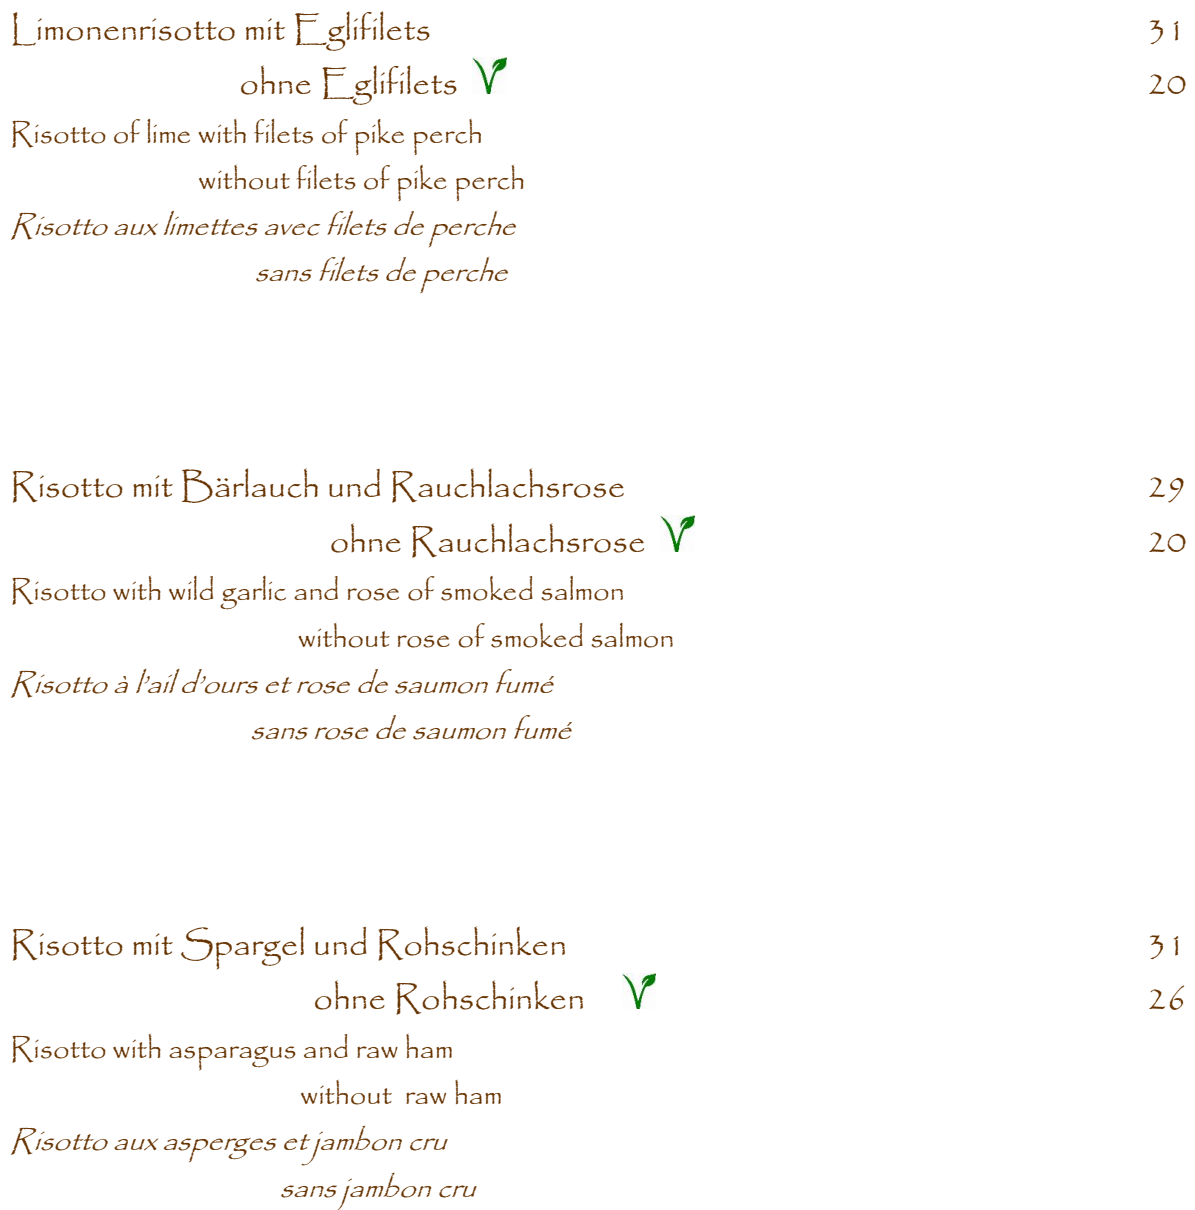 Limonenrisotto mit Eglifilets 31
ohne Eglifilets V 20
Risotto of lime with filets of pike perch
without filets of pike perch
Risotto aux limettes avec filets de perche
sans filets de perche
Risotto mit Bärlauch und Rauchlachsrose 29
ohne Rauchlachsrose V 20
Risotto with wild garlic and rose of smoked salmon
without rose of smoked salmon
Risotto à l’ail d’ours et rose de saumon fumé
sans rose de saumon fumé
Risotto mit Spargel und Rohschinken 31
ohne Rohschinken V 26
Risotto with asparagus and raw ham
without raw ham
Risotto aux asperges et jambon cru
sans jambon cru